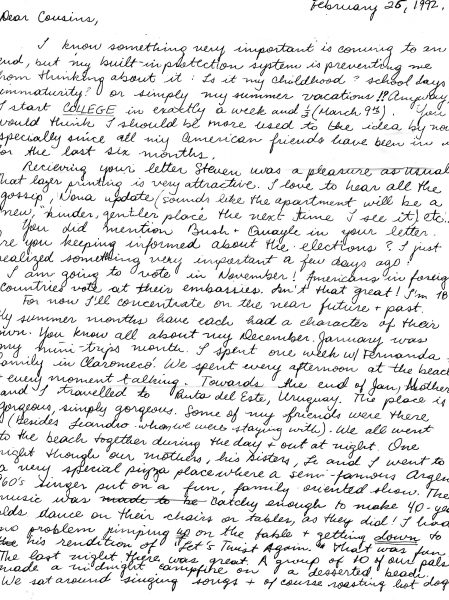 February 25, 1992.
Dear Cousins,
I know something very important is coming to an
end, but my built-in protection system is preventing me
from thinking about it: Is it my childhood? school days
immaturity? or simply my summer vacations!! Anyway,
I start COLLEGE in exactly a week and ½ (March 9th). You
would think I should be more used to the idea by now
specially since all my American friends have been in
for the last six months.
Recieving your letter Steven was a pleasure as usual
that lazer printing is very attractive. I love to hear all the
gossip, Nona update (sounds like the apartment will be a
new, kinder, gentler place the next time I see it) etc..
You did mention Bush + Quayle in your letter.
are you keeping informed about the elections? I just
realized something very important a few days ago!
I am going to vote in November! Americans in foreign
countries vote at their embassies. Isn't that great! I'm 18
For now I'll concentrate on the near future + past.
My summer months have each had a character of their
own. You know all about my December. January was
my mini-trips month. I spent one week w/ Fernanda
family in Claromecó. We spent every afternoon at the beach
+ every moment talking. Towards the end of Jan, Mother
and I travelled to Punta del Este, Uruguay. The place is
gorgeous, simply gorgeous. Some of my friends were there,
(besides Leandro whom we were staying with). We all went
to the beach together during the day + out at night. One
night though our mothers, his sisters, Le and I went to
a very special pizza place where a semi-famous Argen
'60's singer put on a fun, family oriented show. The
music was made to be catchy enough to make 40-yea
olds dance on their chairs or tables, as they did! I had
no problem pimping up on the table + getting down to
his rendition of "Let's Twist Again." That was fun
The last night there was great. A group of 10 of our pals
made a midnight campfire on a desserted beach
We sat around singing songs + of course roasting hot dog